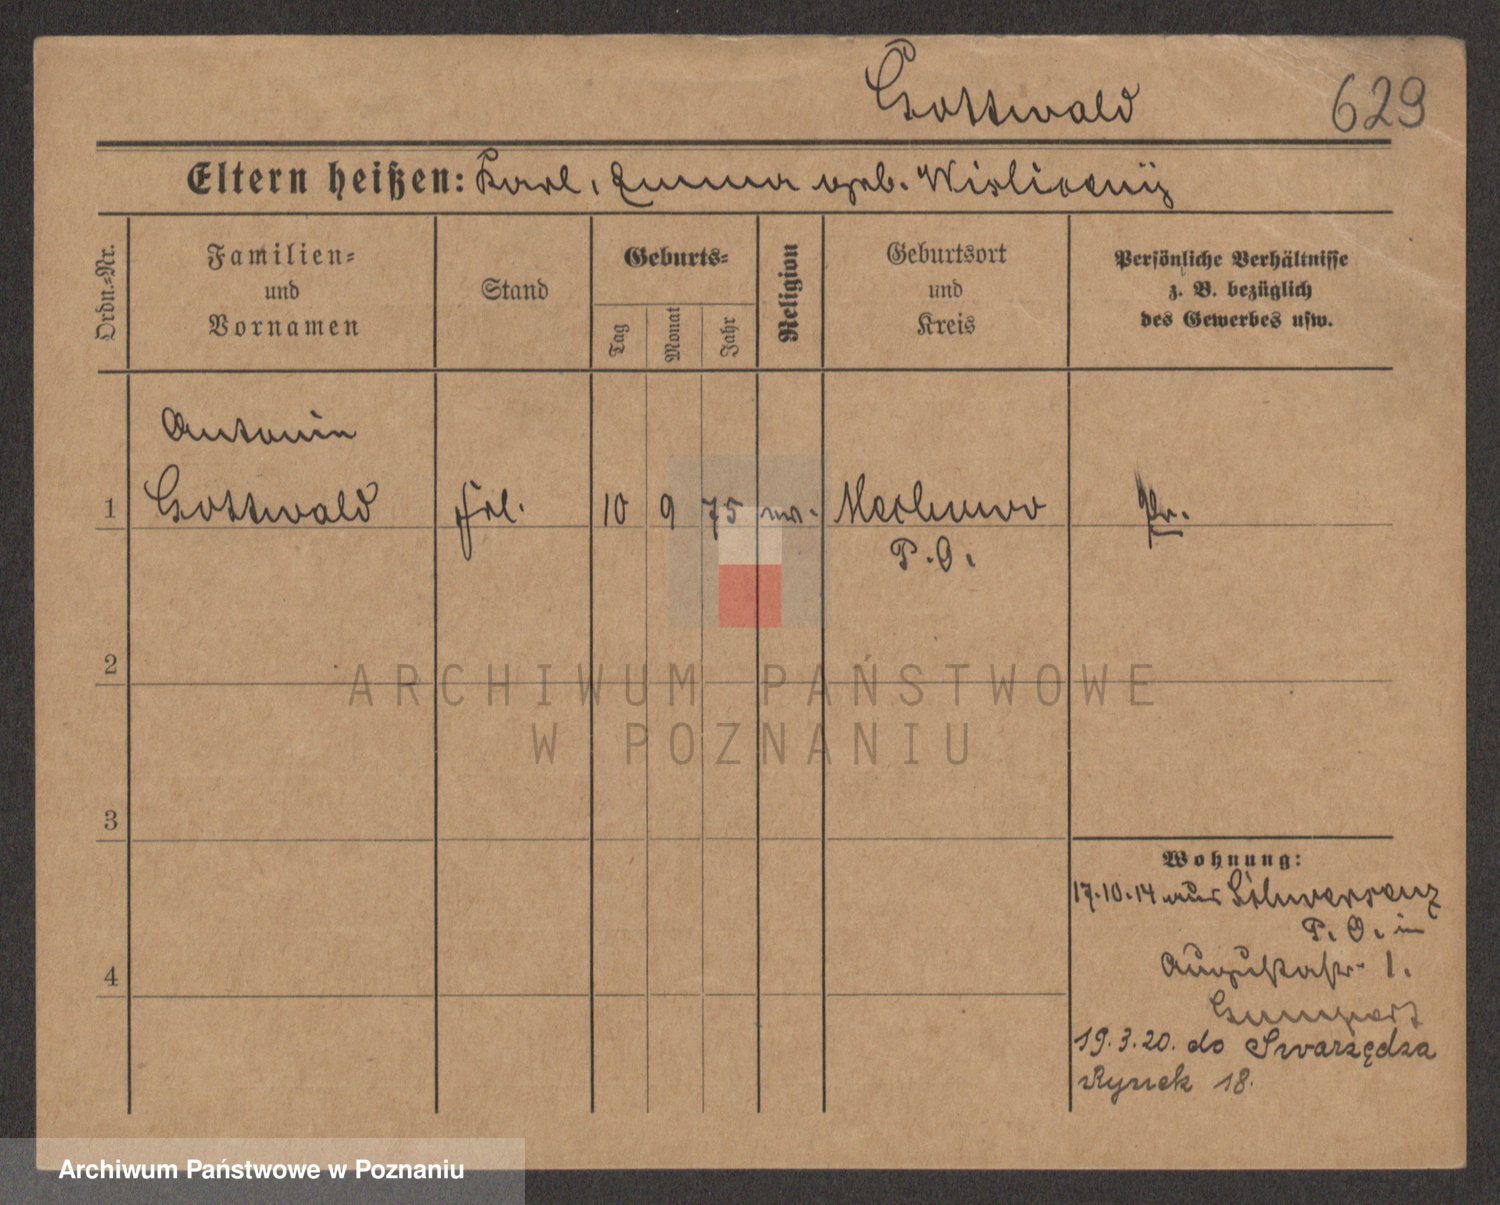 Gottwald 629
Eltern heißen: Karl, Emma geb. Wisliceny
Ordn.-Nr.
Familien-
und
Vornamen
Stand
Geburts-
Tag
Monat
Jahr
Religion
Geburtsort
und
Kreis
Persönliche Verhältnisse
z. B. bezüglich
des Gewerbes usw.
Antonie
1 Gottwald Frl. 10 9 75 Pr.
P. O.
2
3
4
Wohnung:
17.10.14 aus Schwersenz
P. O. in
Augustastr. 1.
19.3.20. do Swarzędza
Rynek 18.
ARCHIWUM PAŃSTWOWE
W POZNANIU
Archiwum Państwowe w Poznaniu